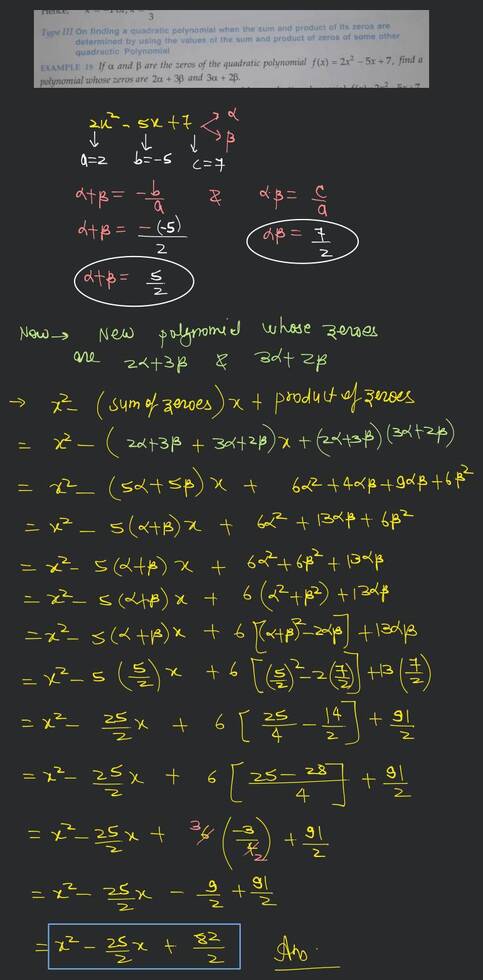 Type III On finding a quadratic polynomial when the sum and product of its zeros are
determined by using the values of the sum and product of zeros of some other
quadractic Polynomial
EXAMPLE 19 If α and β are the zeros of the quadratic polynomial f(x) = 2x² – 5x + 7, find a
polynomial whose zeros are 2α + 3β and 3α + 2β.
2x² - 5x + 7 α
β
a=2 b=-5 c=7
α+β = -b/a & α·β = c/a
α+β = -(-5)/2 αβ = 7/2
α+β = 5/2
Now → New polynomial whose zeroes
are 2α+3β & 3α+2β
→ x² - (sum of zeroes) x + product of zeroes
= x² - (2α+3β + 3α+2β)x + (2α+3β)(3α+2β)
= x² - (5α+5β) x + 6α²+4αβ+9αβ+6β²
= x² - 5(α+β)x + 6α² + 13αβ + 6β²
= x² - 5(α+β) x + 6α²+6β²+13αβ
= x² - 5(α+β) x + 6(α²+β²)+13αβ
= x² - 5(α+β)x + 6[(α+β)²-2αβ]+13αβ
= x² - 5(5/2)x + 6[(5/2)²-2(7/2)]+13(7/2)
= x² - 25/2 x + 6[25/4 - 14/2] + 91/2
= x² - 25/2 x + 6[25-28/4] + 91/2
= x² - 25/2 x + 3 6(-3/4 2) + 91/2
= x² - 25/2 x - 9/2 + 91/2
= x² - 25/2 x + 82/2 Ans.